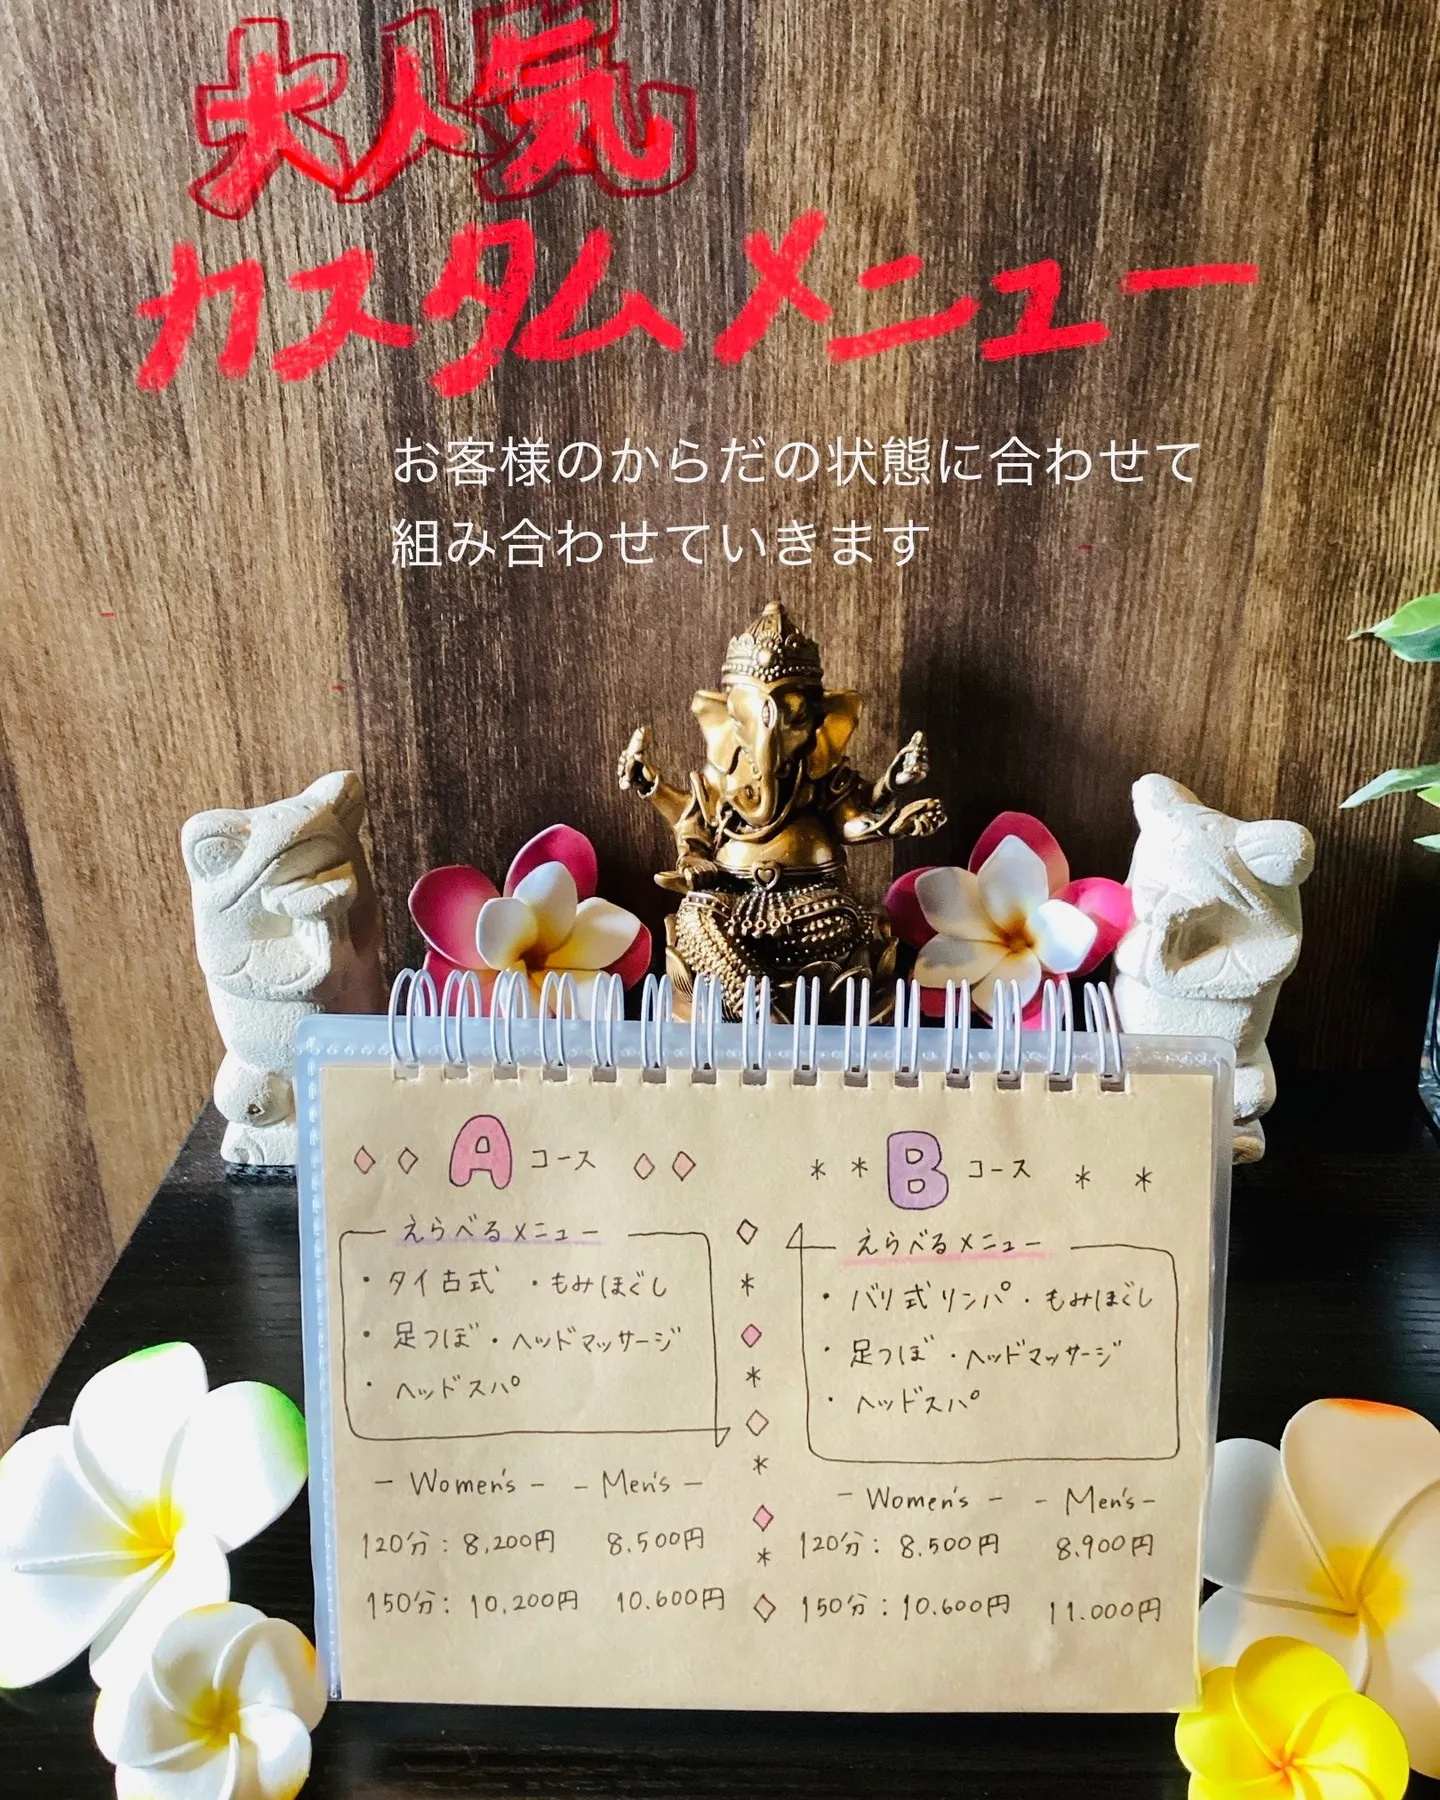 大人気
カスタムメニュー
お客様のからだの状態に合わせて
組み合わせていきます
Aコース
えらべるメニュー
・タイ古式 ・もみほぐし
・足つぼ ・ヘッドマッサージ
・ヘッドスパ
- Women's - - Men's -
120分: 8,200円 8.500円
150分: 10.200円 10.600円
Bコース
えらべるメニュー
・バリ式リンパ ・もみほぐし
・足つぼ ・ヘッドマッサージ
・ヘッドスパ
- Women's - - Men's -
120分: 8.500円 8.900円
150分: 10.600円 11.000円